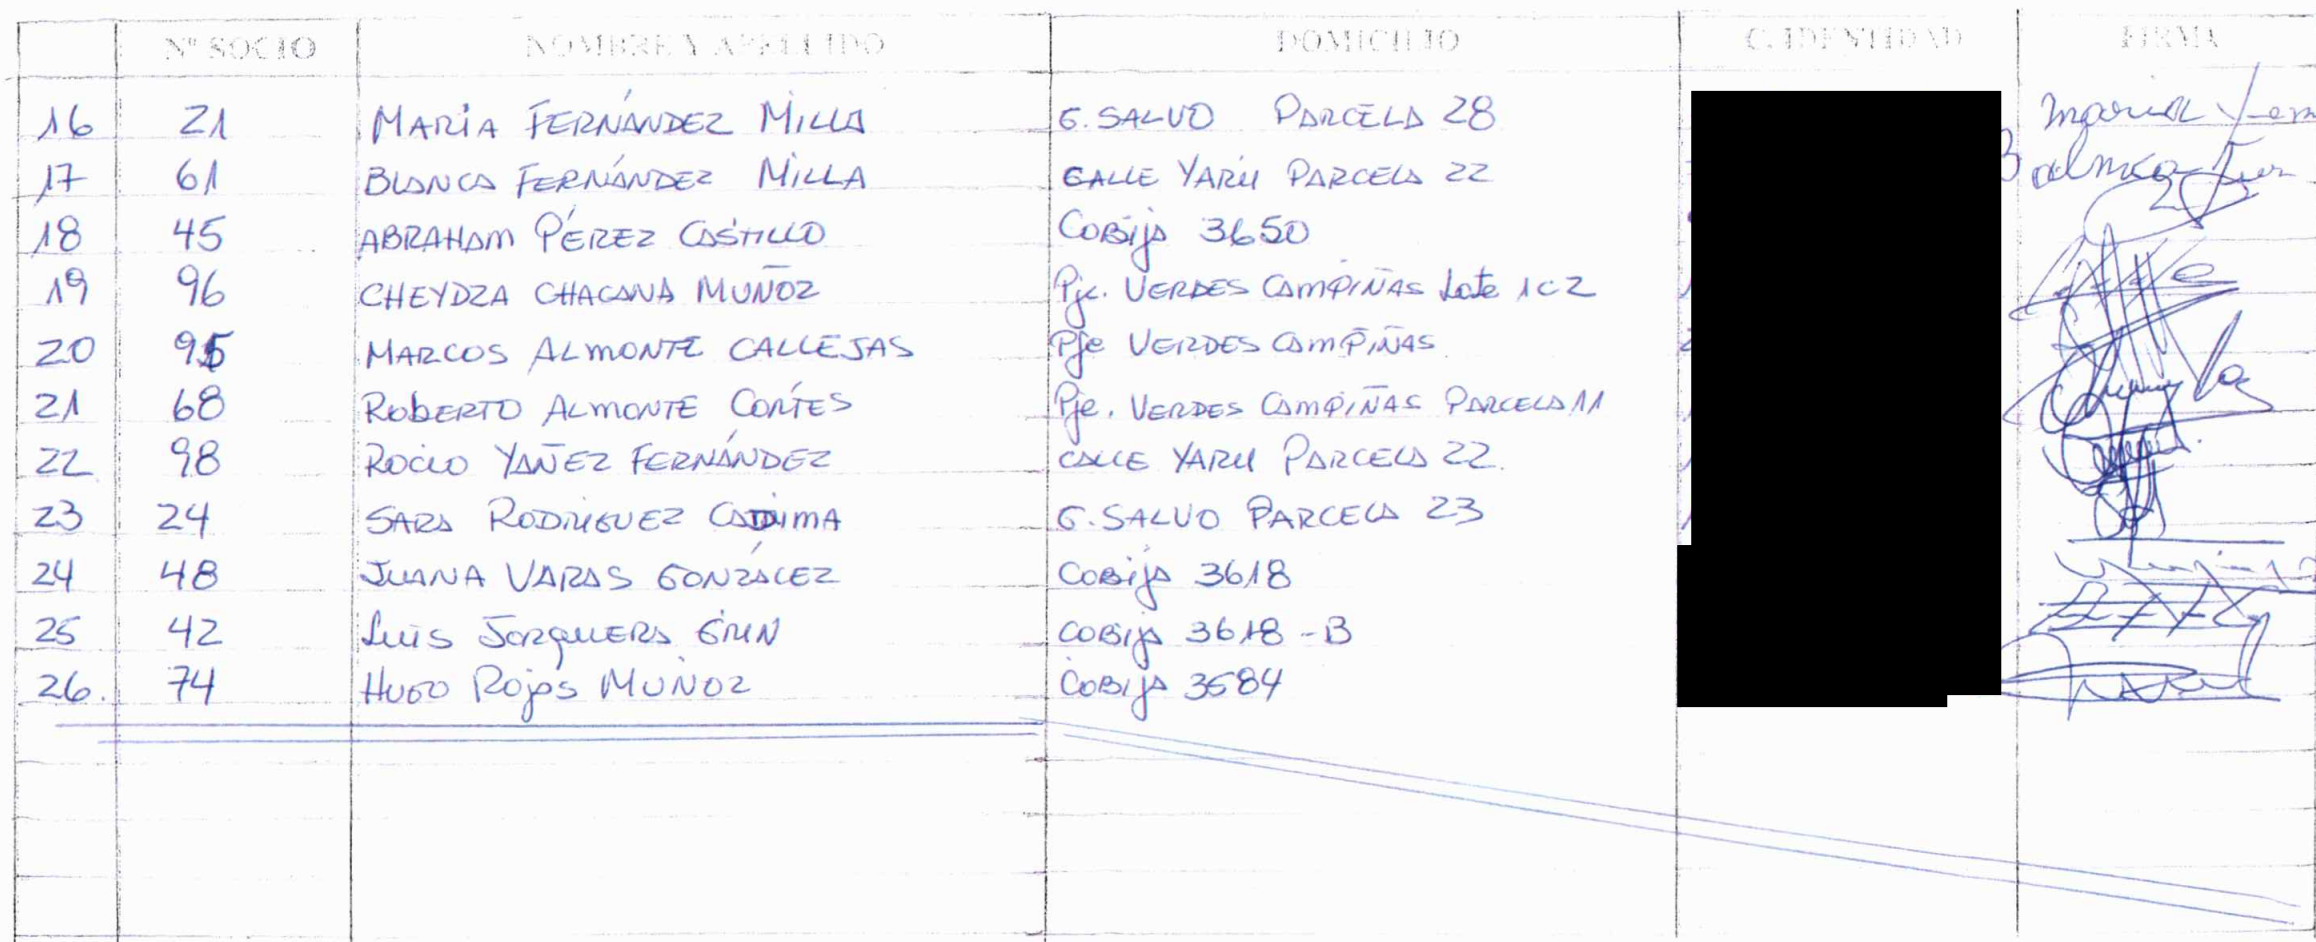 Nº SOCIO NOMBRE Y APELLIDO DOMICILIO C. IDENTIDAD FIRMA
16 21 MARÍA FERNÁNDEZ MILLA G. SALVO PARCELA 28
17 61 BLANCA FERNÁNDEZ MILLA CALLE YARU PARCELA 22
18 45 ABRAHAM PÉREZ CASTILLO Cobija 3650
19 96 CHEYDZA CHACANA MUÑOZ Pje. VERDES CAMPIÑAS Lote 1c2
20 95 MARCOS ALMONTE CALLEJAS Pje VERDES CAMPIÑAS
21 68 ROBERTO ALMONTE CORTÉS Pje. VERDES CAMPIÑAS PARCELA 11
22 98 ROCIO YAÑEZ FERNÁNDEZ CALLE YARU PARCELA 22.
23 24 SARA RODRIGUEZ G. SALVO PARCELA 23
24 48 JUANA VARAS GONZÁLEZ Cobija 3618
25 42 Luis Jorquera Cobija 3618-B
26. 74 HUGO Rojas MUÑOZ Cobija 3584